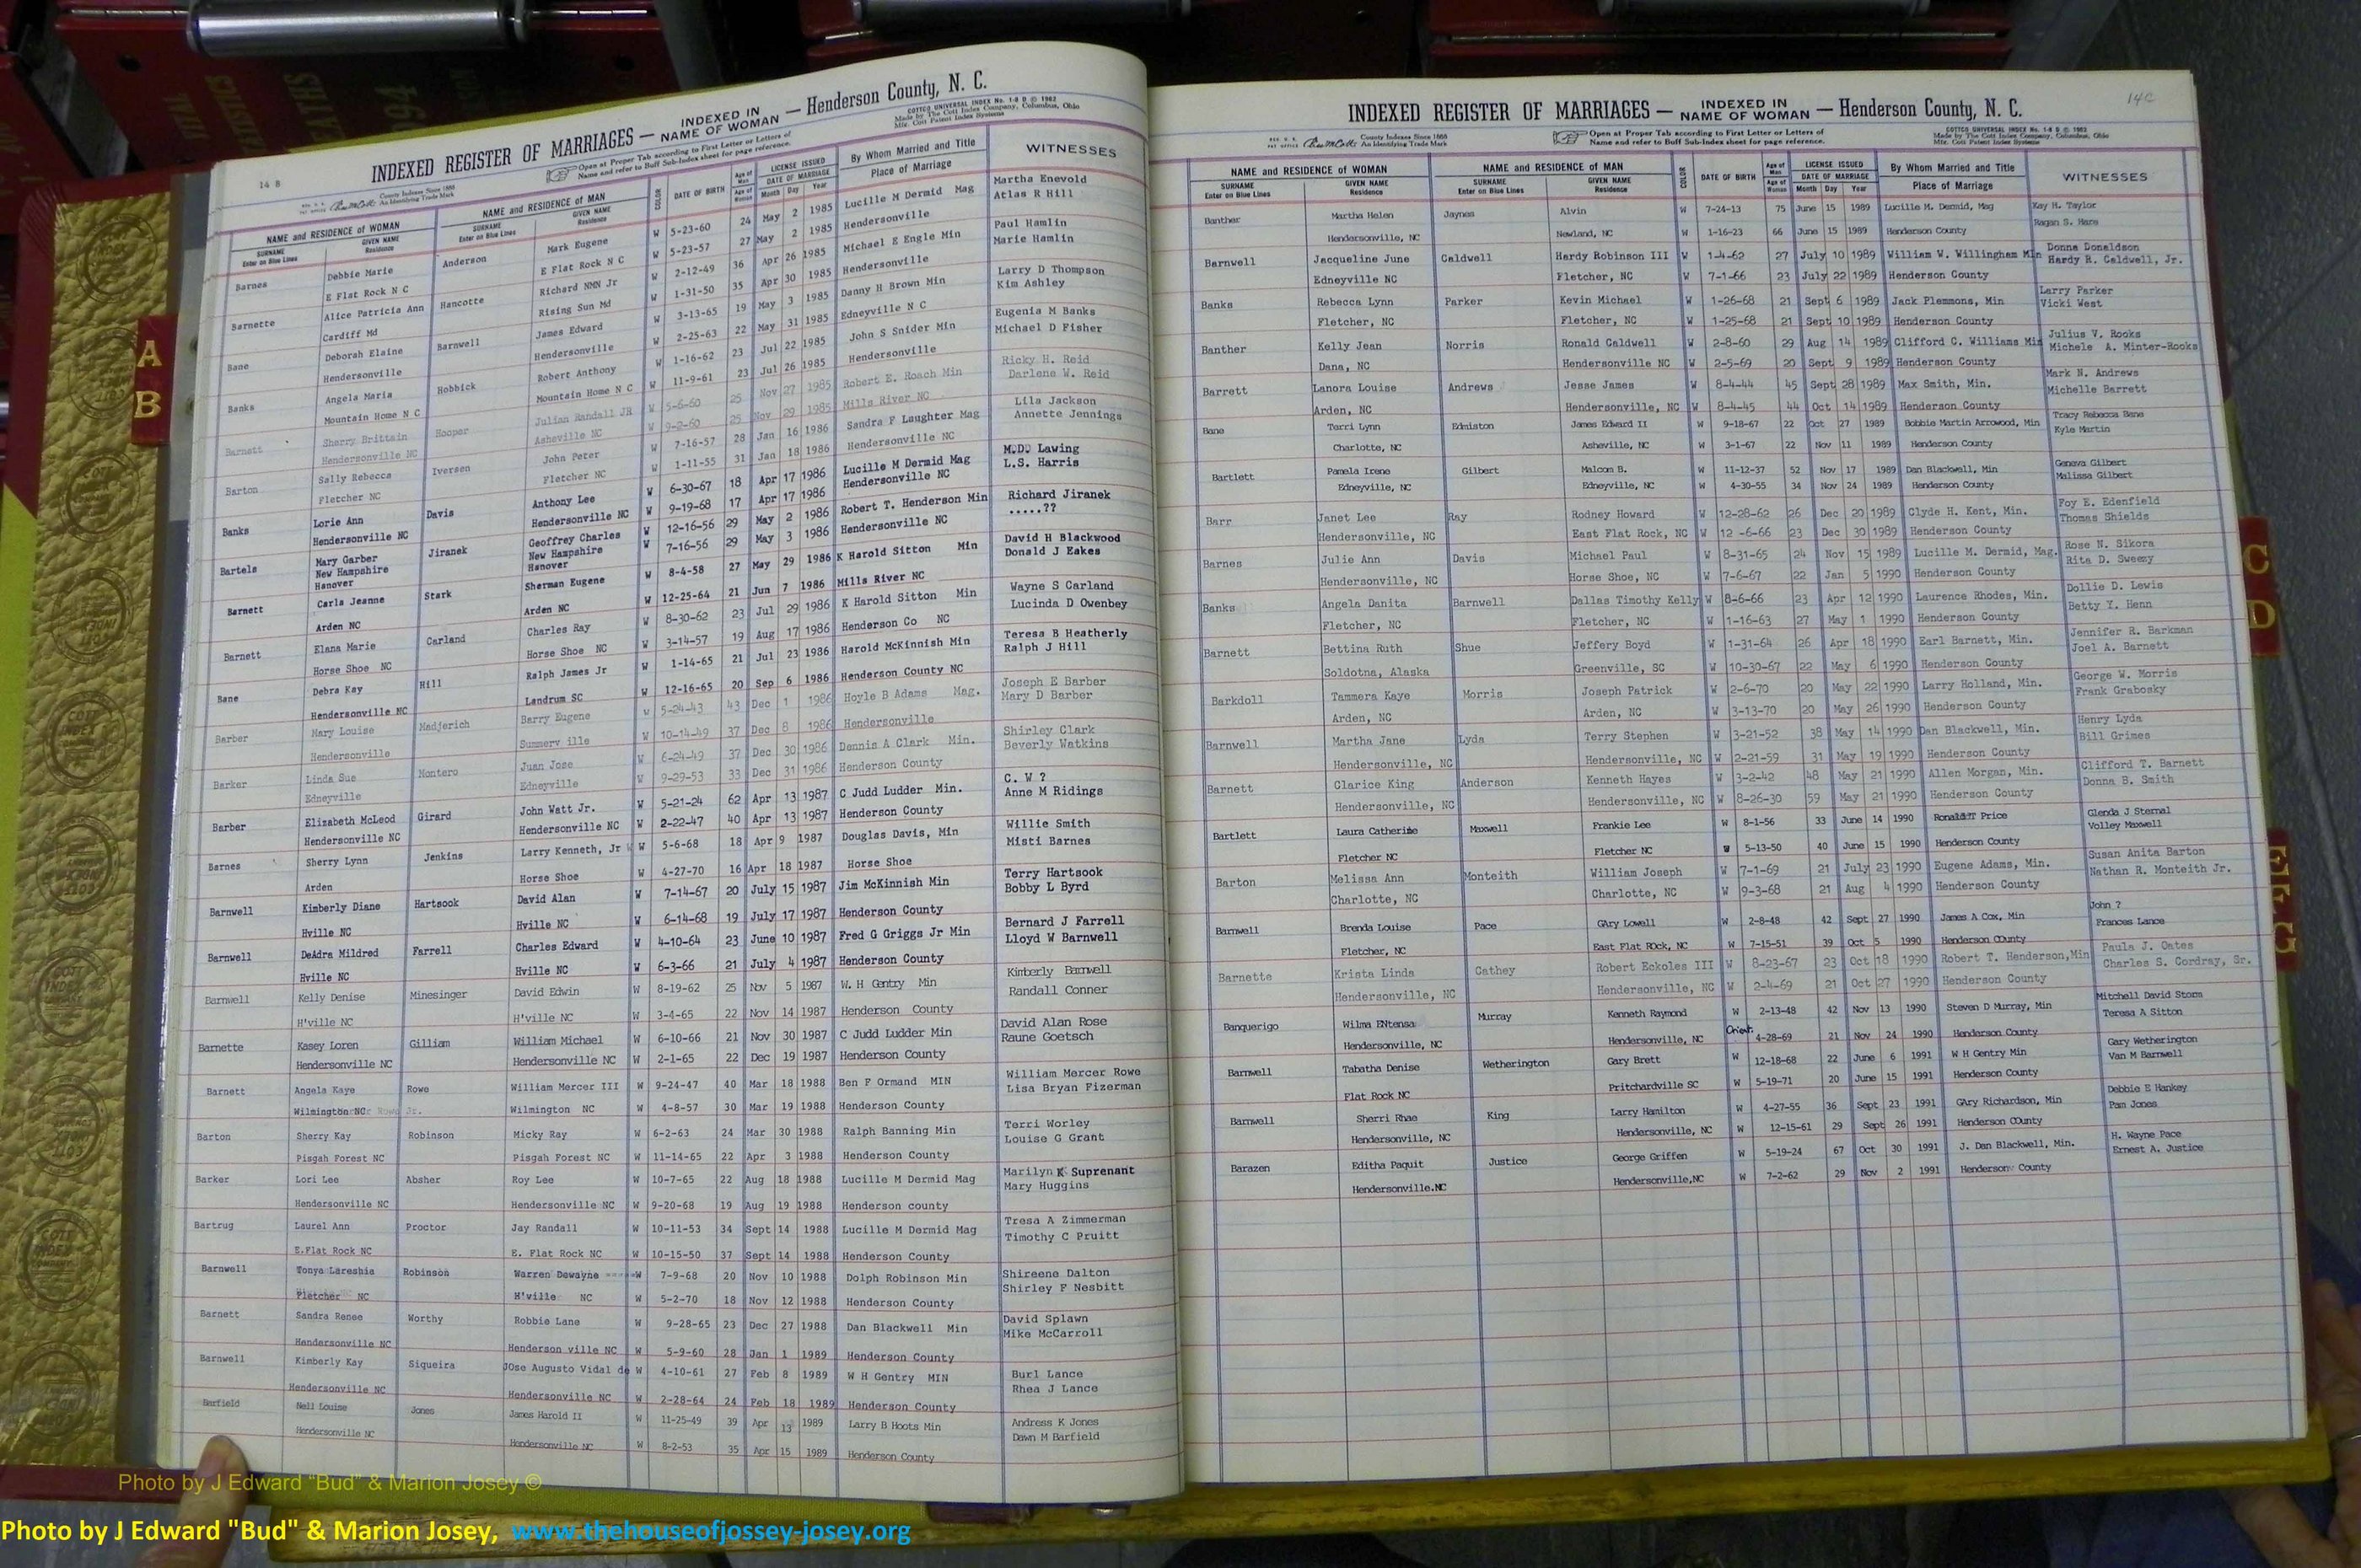 INDEXED REGISTER OF MARRIAGES — INDEXED IN NAME OF WOMAN — Henderson County, N. C.
14 B
County Indexes Since 1888
An Identifying Trade Mark
Open at Proper Tab according to First Letter or Letters of
Name and refer to Buff Sub-Index sheet for page reference.
COTTCO UNIVERSAL INDEX No. 1-8 D © 1962
Made by The Cott Index Company, Columbus, Ohio
Mfr. Cott Patent Index Systems
NAME and RESIDENCE OF WOMAN NAME and RESIDENCE OF MAN COLOR DATE OF BIRTH Age of Man Age of Woman LICENSE ISSUED DATE OF MARRIAGE By Whom Married and Title WITNESSES
SURNAME Enter on Blue Lines GIVEN NAME Residence SURNAME Enter on Blue Lines GIVEN NAME Residence Month Day Year Place of Marriage
Barnes Debbie Marie Anderson Mark Eugene W 5-23-60 24 May 2 1985 Lucille M Dermid Mag Martha Enevold
E Flat Rock N C E Flat Rock N C W 5-23-57 27 May 2 1985 Hendersonville Atlas R Hill
Barnette Alice Patricia Ann Hancotte Richard NMN Jr W 2-12-49 36 Apr 26 1985 Michael E Engle Min Paul Hamlin
Cardiff Md Rising Sun Md W 1-31-50 35 Apr 30 1985 Hendersonville Marie Hamlin
Bane Deborah Elaine Barnwell James Edward W 3-13-65 19 May 3 1985 Danny H Brown Min Larry D Thompson
Hendersonville Hendersonville W 2-25-63 22 May 31 1985 Edneyville N C Kim Ashley
Banks Angela Maria Hobbick Robert Anthony W 1-16-62 23 Jul 22 1985 John S Snider Min Eugenia M Banks
Mountain Home N C Mountain Home N C W 11-9-61 23 Jul 26 1985 Hendersonville Michael D Fisher
Barnett Sherry Brittain Hooper Julian Randall JR W 5-6-60 25 Nov 27 1985 Robert E. Roach Min Ricky H. Reid
Hendersonville NC Asheville NC W 9-2-60 25 Nov 29 1985 Mills River NC Darlene W. Reid
Barton Sally Rebecca Iversen John Peter W 7-16-57 28 Jan 16 1986 Sandra F Laughter Mag Lila Jackson
Fletcher NC Fletcher NC W 1-11-55 31 Jan 18 1986 Hendersonville NC Annette Jennings
Banks Lorie Ann Davis Anthony Lee W 6-30-67 18 Apr 17 1986 Lucille M Dermid Mag Lawing
Hendersonville NC Hendersonville NC W 9-19-68 17 Apr 17 1986 Hendersonville NC L.S. Harris
Bartels Mary Garber Jiranek Geoffrey Charles W 12-16-56 29 May 2 1986 Robert T. Henderson Min Richard Jiranek
New Hampshire New Hampshire W 7-16-56 29 May 3 1986 Hendersonville NC .....??
Hanover Hanover
Barnett Carla Jeanne Stark Sherman Eugene W 8-4-58 27 May 29 1986 K Harold Sitton Min David H Blackwood
Arden NC Arden NC W 12-25-64 21 Jun 7 1986 Mills River NC Donald J Eakes
Barnett Elana Marie Carland Charles Ray W 8-30-62 23 Jul 29 1986 K Harold Sitton Min Wayne S Carland
Horse Shoe NC Horse Shoe NC W 3-14-57 19 Aug 17 1986 Henderson Co NC Lucinda D Owenbey
Bane Debra Kay Hill Ralph James Jr W 1-14-65 21 Jul 23 1986 Harold McKinnish Min Teresa B Heatherly
Hendersonville NC Landrum SC W 12-16-65 20 Sep 6 1986 Henderson County NC Ralph J Hill
Barber Mary Louise Madjerich Barry Eugene W 5-24-43 43 Dec 1 1986 Hoyle B Adams Mag. Joseph E Barber
Hendersonville Summerv ille W 10-14-49 37 Dec 8 1986 Hendersonville Mary D Barber
Barker Linda Sue Montero Juan Jose W 6-24-49 37 Dec 30 1986 Dennis A Clark Min. Shirley Clark
Edneyville Edneyville W 9-29-53 33 Dec 31 1986 Henderson County Beverly Watkins
Barber Elizabeth McLeod Girard John Watt Jr. W 5-21-24 62 Apr 13 1987 C Judd Ludder Min. C. W ?
Hendersonville NC Hendersonville NC W 2-22-47 40 Apr 13 1987 Henderson County Anne M Ridings
Barnes Sherry Lynn Jenkins Larry Kenneth, Jr W 5-6-68 18 Apr 9 1987 Douglas Davis, Min Willie Smith
Arden Horse Shoe W 4-27-70 16 Apr 18 1987 Horse Shoe Misti Barnes
Barnwell Kimberly Diane Hartsook David Alan W 7-14-67 20 July 15 1987 Jim McKinnish Min Terry Hartsook
Hville NC Hville NC W 6-14-68 19 July 17 1987 Henderson County Bobby L Byrd
Barnwell DeAdra Mildred Farrell Charles Edward W 4-10-64 23 June 10 1987 Fred G Griggs Jr Min Bernard J Farrell
Hville NC Hville NC W 6-3-66 21 July 4 1987 Henderson County Lloyd W Barnwell
Barnwell Kelly Denise Minesinger David Edwin W 8-19-62 25 Nov 5 1987 W. H Gentry Min Kimberly Barnwell
H'ville NC H'ville NC W 3-4-65 22 Nov 14 1987 Henderson County Randall Conner
Barnette Kasey Loren Gilliam William Michael W 6-10-66 21 Nov 30 1987 C Judd Ludder Min David Alan Rose
Hendersonville NC Hendersonville NC W 2-1-65 22 Dec 19 1987 Henderson County Raune Goetsch
Barnett Angela Kaye Rowe William Mercer III W 9-24-47 40 Mar 18 1988 Ben F Ormand MIN William Mercer Rowe
Wilmington NC Jr. Wilmington NC W 4-8-57 30 Mar 19 1988 Henderson County Lisa Bryan Fizerman
Barton Sherry Kay Robinson Micky Ray W 6-2-63 24 Mar 30 1988 Ralph Banning Min Terri Worley
Pisgah Forest NC Pisgah Forest NC W 11-14-65 22 Apr 3 1988 Henderson County Louise G Grant
Barker Lori Lee Absher Roy Lee W 10-7-65 22 Aug 18 1988 Lucille M Dermid Mag Marilyn K Suprenant
Hendersonville NC Hendersonville NC W 9-20-68 19 Aug 19 1988 Henderson county Mary Huggins
Bartrug Laurel Ann Proctor Jay Randall W 10-11-53 34 Sept 14 1988 Lucille M Dermid Mag Tresa A Zimmerman
E.Flat Rock NC E. Flat Rock NC W 10-15-50 37 Sept 14 1988 Henderson County Timothy C Pruitt
Barnwell Tonya Lareshia Robinson Warren Dewayne W 7-9-68 20 Nov 10 1988 Dolph Robinson Min Shireene Dalton
Fletcher NC H'ville NC W 5-2-70 18 Nov 12 1988 Henderson County Shirley F Nesbitt
Barnett Sandra Renee Worthy Robbie Lane W 9-28-65 23 Dec 27 1988 Dan Blackwell Min David Splawn
Hendersonville NC Henderson ville NC W 5-9-60 28 Jan 1 1989 Henderson County Mike McCarroll
Barnwell Kimberly Kay Siqueira JOse Augusto Vidal de W 4-10-61 27 Feb 8 1989 W H Gentry MIN Burl Lance
Hendersonville NC Hendersonville NC W 2-28-64 24 Feb 18 1989 Henderson County Rhea J Lance
Barfield Nell Louise Jones James Harold II W 11-25-49 39 Apr 13 1989 Larry B Hoots Min Andress K Jones
Hendersonville NC Hendersonville NC W 8-2-53 35 Apr 15 1989 Henderson County Dawn M Barfield
INDEXED REGISTER OF MARRIAGES — INDEXED IN NAME OF WOMAN — Henderson County, N. C.
14C
County Indexes Since 1888
An Identifying Trade Mark
Open at Proper Tab according to First Letter or Letters of
Name and refer to Buff Sub-Index sheet for page reference.
COTTCO UNIVERSAL INDEX No. 1-8 D © 1962
Made by The Cott Index Company, Columbus, Ohio
Mfr. Cott Patent Index Systems
NAME and RESIDENCE OF WOMAN NAME and RESIDENCE OF MAN COLOR DATE OF BIRTH Age of Man Age of Woman LICENSE ISSUED DATE OF MARRIAGE By Whom Married and Title WITNESSES
SURNAME Enter on Blue Lines GIVEN NAME Residence SURNAME Enter on Blue Lines GIVEN NAME Residence Month Day Year Place of Marriage
Banther Martha Helen Jaynes Alvin W 7-24-13 75 June 15 1989 Lucille M. Dermid, Mag Kay H. Taylor
Hendersonville, NC Newland, NC W 1-16-23 66 June 15 1989 Henderson County Ragan S. Hare
Barnwell Jacqueline June Caldwell Hardy Robinson III W 1-4-62 27 July 10 1989 William W. Willingham MIn Donna Donaldson
Edneyville NC Fletcher, NC W 7-1-66 23 July 22 1989 Henderson County Hardy R. Caldwell, Jr.
Banks Rebecca Lynn Parker Kevin Michael W 1-26-68 21 Sept 6 1989 Jack Plemmons, Min Larry Parker
Fletcher, NC Fletcher, NC W 1-25-68 21 Sept 10 1989 Henderson County Vicki West
Banther Kelly Jean Norris Ronald Caldwell W 2-8-60 29 Aug 14 1989 Clifford C. Williams Min Julius V. Rooks
Dana, NC Hendersonville NC W 2-5-69 20 Sept 9 1989 Henderson County Michele A. Minter-Rooks
Barrett Lanora Louise Andrews Jesse James W 8-4-44 45 Sept 28 1989 Max Smith, Min. Mark N. Andrews
Arden, NC Hendersonville, NC W 8-4-45 44 Oct 14 1989 Henderson County Michelle Barrett
Bane Terri Lynn Edmiston James Edward II W 9-18-67 22 Oct 27 1989 Bobbie Martin Arrowood, Min Tracy Rebecca Bane
Charlotte, NC Asheville, NC W 3-1-67 22 Nov 11 1989 Henderson County Kyle Martin
Bartlett Pamela Irene Gilbert Malcom B. W 11-12-37 52 Nov 17 1989 Dan Blackwell, Min Geneva Gilbert
Edneyville, NC Edneyville, NC W 4-30-55 34 Nov 24 1989 Henderson County Malissa Gilbert
Barr Janet Lee Ray Rodney Howard W 12-28-62 26 Dec 20 1989 Clyde H. Kent, Min. Foy E. Edenfield
Hendersonville, NC East Flat Rock, NC W 12 -6-66 23 Dec 30 1989 Henderson County Thomas Shields
Barnes Julie Ann Davis Michael Paul W 8-31-65 24 Nov 15 1989 Lucille M. Dermid, Mag. Rose N. Sikora
Hendersonville, NC Horse Shoe, NC W 7-6-67 22 Jan 5 1990 Henderson County Rita D. Sweezy
Banks Angela Danita Barnwell Dallas Timothy Kelly W 8-6-66 23 Apr 12 1990 Laurence Rhodes, Min. Dollie D. Lewis
Fletcher, NC Fletcher, NC W 1-16-63 27 May 1 1990 Henderson County Betty Y. Henn
Barnett Bettina Ruth Shue Jeffery Boyd W 1-31-64 26 Apr 18 1990 Earl Barnett, Min. Jennifer R. Barkman
Soldotna, Alaska Greenville, SC W 10-30-67 22 May 6 1990 Henderson County Joel A. Barnett
Barkdoll Tammera Kaye Morris Joseph Patrick W 2-6-70 20 May 22 1990 Larry Holland, Min. George W. Morris
Arden, NC Arden, NC W 3-13-70 20 May 26 1990 Henderson County Frank Grabosky
Barnwell Martha Jane Lyda Terry Stephen W 3-21-52 38 May 14 1990 Dan Blackwell, Min. Henry Lyda
Hendersonville, NC Hendersonville, NC W 2-21-59 31 May 19 1990 Henderson County Bill Grimes
Barnett Clarice King Anderson Kenneth Hayes W 3-2-42 48 May 21 1990 Allen Morgan, Min. Clifford T. Barnett
Hendersonville, NC Hendersonville, NC W 8-26-30 59 May 21 1990 Henderson County Donna B. Smith
Bartlett Laura Catherine Maxwell Frankie Lee W 8-1-56 33 June 14 1990 Ronald T Price Glenda J Sternal
Fletcher NC Fletcher NC W 5-13-50 40 June 15 1990 Henderson County Volley Maxwell
Barton Melissa Ann Monteith William Joseph W 7-1-69 21 July 23 1990 Eugene Adams, Min. Susan Anita Barton
Charlotte, NC Charlotte, NC W 9-3-68 21 Aug 4 1990 Henderson County Nathan R. Monteith Jr.
Barnwell Brenda Louise Pace GAry Lowell W 2-8-48 42 Sept 27 1990 James A Cox, Min John ?
Fletcher, NC East Flat ROck, NC W 7-15-51 39 Oct 5 1990 Henderson COunty Frances Lance
Barnette Krista Linda Cathey Robert Eckoles III W 8-23-67 23 Oct 18 1990 Robert T. Henderson,Min Paula J. Oates
Hendersonville, NC Hendersonville, NC W 2-4-69 21 Oct 27 1990 Henderson County Charles S. Cordray, Sr.
Banquerigo Wilma ENtensa Murray Kenneth Raymond W 2-13-48 42 Nov 13 1990 Steven D Murray, Min Mitchell David Storm
Hendersonville, NC Hendersonville, NC Orient. 4-28-69 21 Nov 24 1990 Henderson County Teresa A Sitton
Barnwell Tabatha Denise Wetherington Gary Brett W 12-18-68 22 June 6 1991 W H Gentry Min Gary Wetherington
Flat Rock NC Pritchardville SC W 5-19-71 20 June 15 1991 Henderson County Van M Barnwell
Barnwell Sherri Rhae King Larry Hamilton W 4-27-55 36 Sept 23 1991 GAry Richardson, Min Debbie E Hankey
Hendersonville, NC Hendersonville, NC W 12-15-61 29 Sept 26 1991 Henderson COunty Pam Jones
Barazen Editha Paquit Justice George Griffen W 5-19-24 67 Oct 30 1991 J. Dan Blackwell, Min. H. Wayne Pace
Hendersonville.NC Hendersonville,NC W 7-2-62 29 Nov 2 1991 Henderson County Ernest A. Justice
A
B
C
D
E
F
G
Photo by J Edward "Bud" & Marion Josey ©
Photo by J Edward "Bud" & Marion Josey, www.thehouseofjossey-josey.org